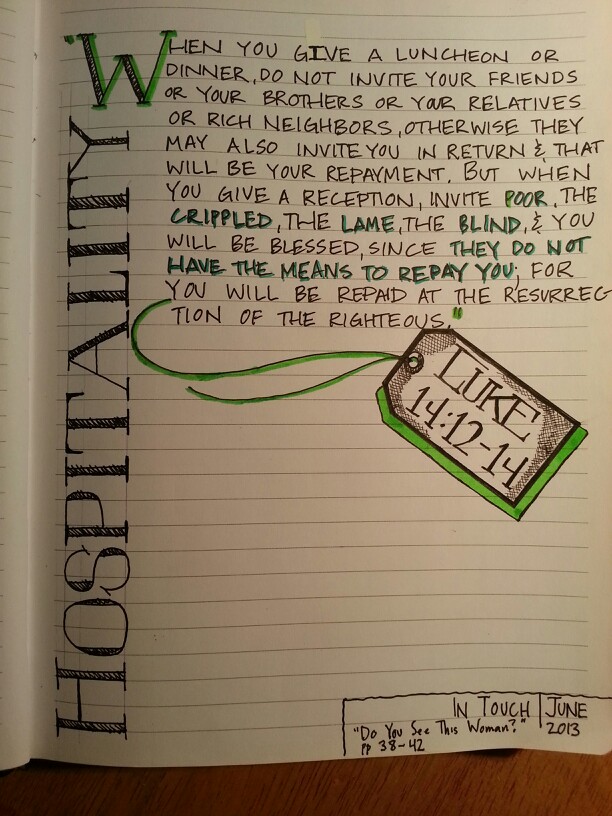 HOSPITALITY
"WHEN YOU GIVE A LUNCHEON OR
DINNER, DO NOT INVITE YOUR FRIENDS
OR YOUR BROTHERS OR YOUR RELATIVES
OR RICH NEIGHBORS, OTHERWISE THEY
MAY ALSO INVITE YOU IN RETURN & THAT
WILL BE YOUR REPAYMENT. BUT WHEN
YOU GIVE A RECEPTION, INVITE POOR, THE
CRIPPLED, THE LAME, THE BLIND, & YOU
WILL BE BLESSED, SINCE THEY DO NOT
HAVE THE MEANS TO REPAY YOU; FOR
YOU WILL BE REPAID AT THE RESURREC
TION OF THE RIGHTEOUS."
LUKE
14:12-14
IN TOUCH
"Do You See This Woman?"
pp 38-42
JUNE
2013